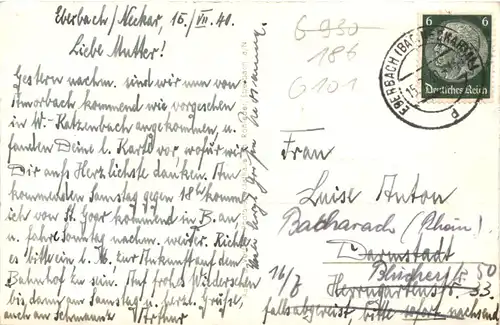 Eberbach/Neckar, 15./VII. 40.
Liebe Mutter!
Gestern nachm. sind wir nun von
Amorbach kommend wie vorgesehen
in W.-Katzenbach angekommen, u.
fanden Deine l. Karte vor, wofür wir
Dir aufs Herzlichste danken. Am
kommenden Samstag gegen 18h komm
ich von St. Goar kommend in B. an
u. fahre Sonntag nachm. weiter. Richte
es bitte ein l. M. zur Ankunft auf dem
Bahnhof zu sein. Auf frohes Wiedersehen
bis dann am Samstag u. herzl. Grüße,
auch an Schwannes Arthur
G 930
186
G 101
6 6
Deutsches Reich
EBERBACH (BADEN)
15.
d
Frau
Luise Anton
Bacharach (Rhein)
Darmstadt
Blücherstr. 50
16/7 Herrngartenstr. 33.
falls abgereist, bitte sofort nachsenden